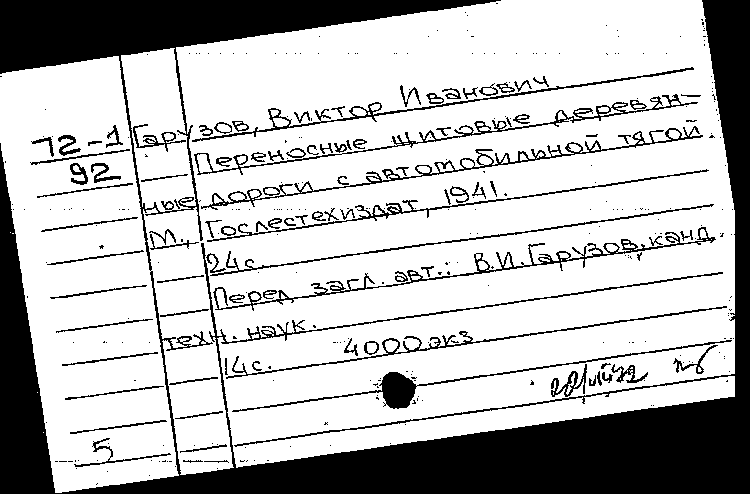 72-1
92
Гарузов, Виктор Иванович.
Переносные щитовые деревян-
ные дороги с автомобильной тягой.
М., Гослестехиздат, 1941.
24с.
Перед загл. авт.: В.И.Гарузов, канд.
техн. наук.
14с. 4000экз
5